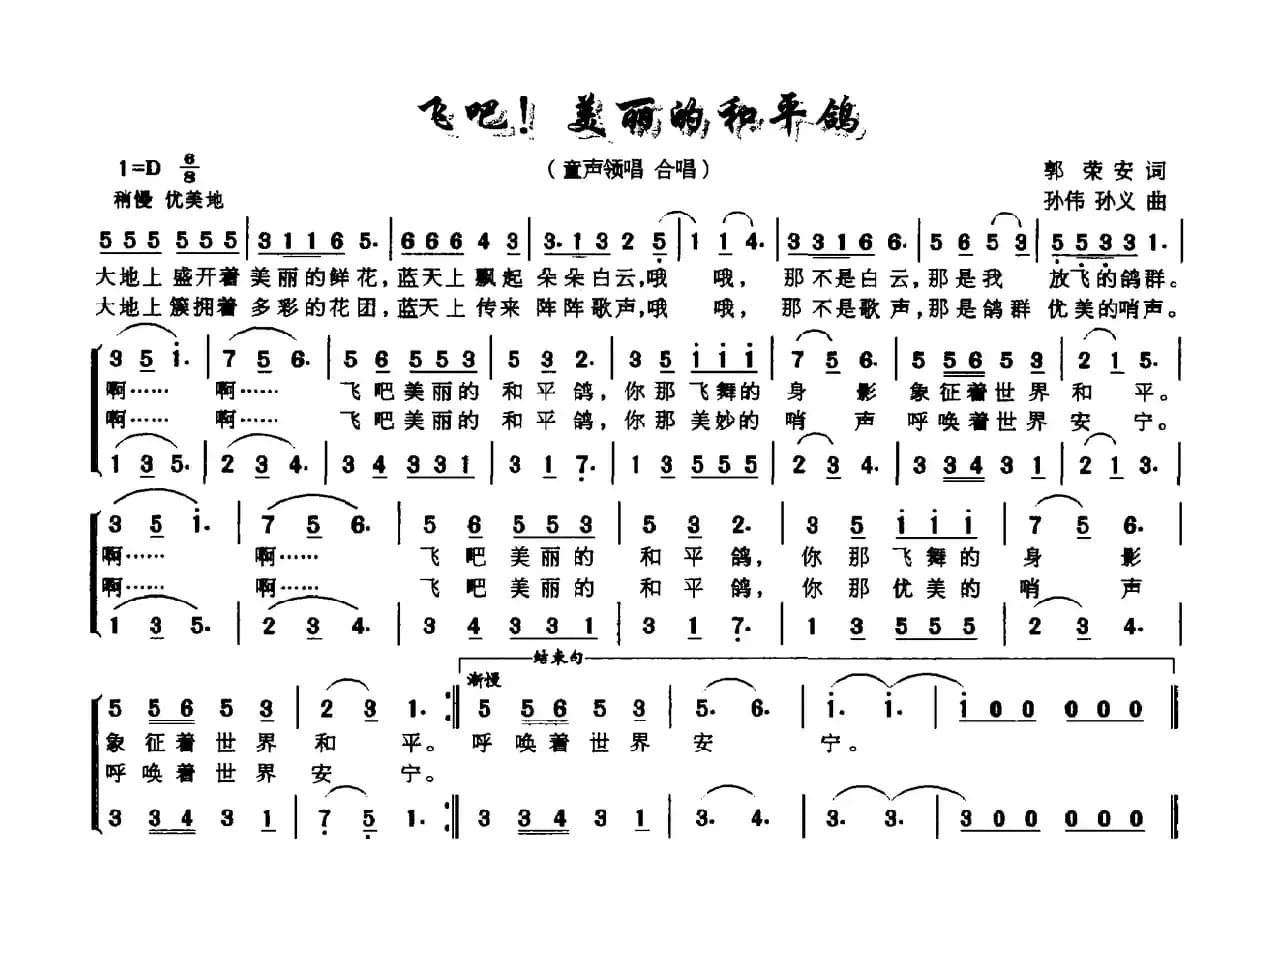 飞吧！美丽的和平鸽
1=D 6/8 （童声领唱 合唱） 郭荣安词
稍慢 优美地 孙伟 孙义 曲
5 5 5 5 5 5 | 3 1 1 6 5. | 6 6 6 4 3 | 3. 1 3 2 5 | 1 1 4. | 3 3 1 6 6. | 5 6 5 3 | 5 5 3 3 1. |
大地上 盛开着 美丽的鲜花，蓝天上飘起 朵朵白云，哦 哦， 那不是白云，那是我 放飞的鸽群。
大地上簇拥着 多彩的花团，蓝天上传来 阵阵歌声，哦 哦， 那不是歌声，那是鸽群 优美的哨声。
3 5 i. | 7 5 6. | 5 6 5 5 3 | 5 3 2. | 3 5 i i i | 7 5 6. | 5 5 6 5 3 | 2 1 5. |
啊…… 啊…… 飞吧美丽的 和平鸽，你那飞舞的 身 影 象征着世界 和 平。
啊…… 啊…… 飞吧美丽的 和平鸽，你那美妙的 哨 声 呼唤着世界 安 宁。
1 3 5. | 2 3 4. | 3 4 3 3 1 | 3 1 7. | 1 3 5 5 5 | 2 3 4. | 3 3 4 3 1 | 2 1 3. |
3 5 i. | 7 5 6. | 5 6 5 5 3 | 5 3 2. | 3 5 i i i | 7 5 6. |
啊…… 啊…… 飞吧美丽的 和平鸽， 你那飞舞的 身 影
啊…… 啊…… 飞吧美丽的 和平鸽， 你那优美的 哨 声
1 3 5. | 2 3 4. | 3 4 3 3 1 | 3 1 7. | 1 3 5 5 5 | 2 3 4. |
结束句
渐慢
5 5 6 5 3 | 2 3 1. :‖ 5 5 6 5 3 | 5. 6. | i. i. | i 0 0 0 0 0 ‖
象征着世界 和 平。 呼唤着世界 安 宁。
呼唤着世界 安 宁。
3 3 4 3 1 | 7 5 1. :‖ 3 3 4 3 1 | 3. 4. | 3. 3. | 3 0 0 0 0 0 ‖